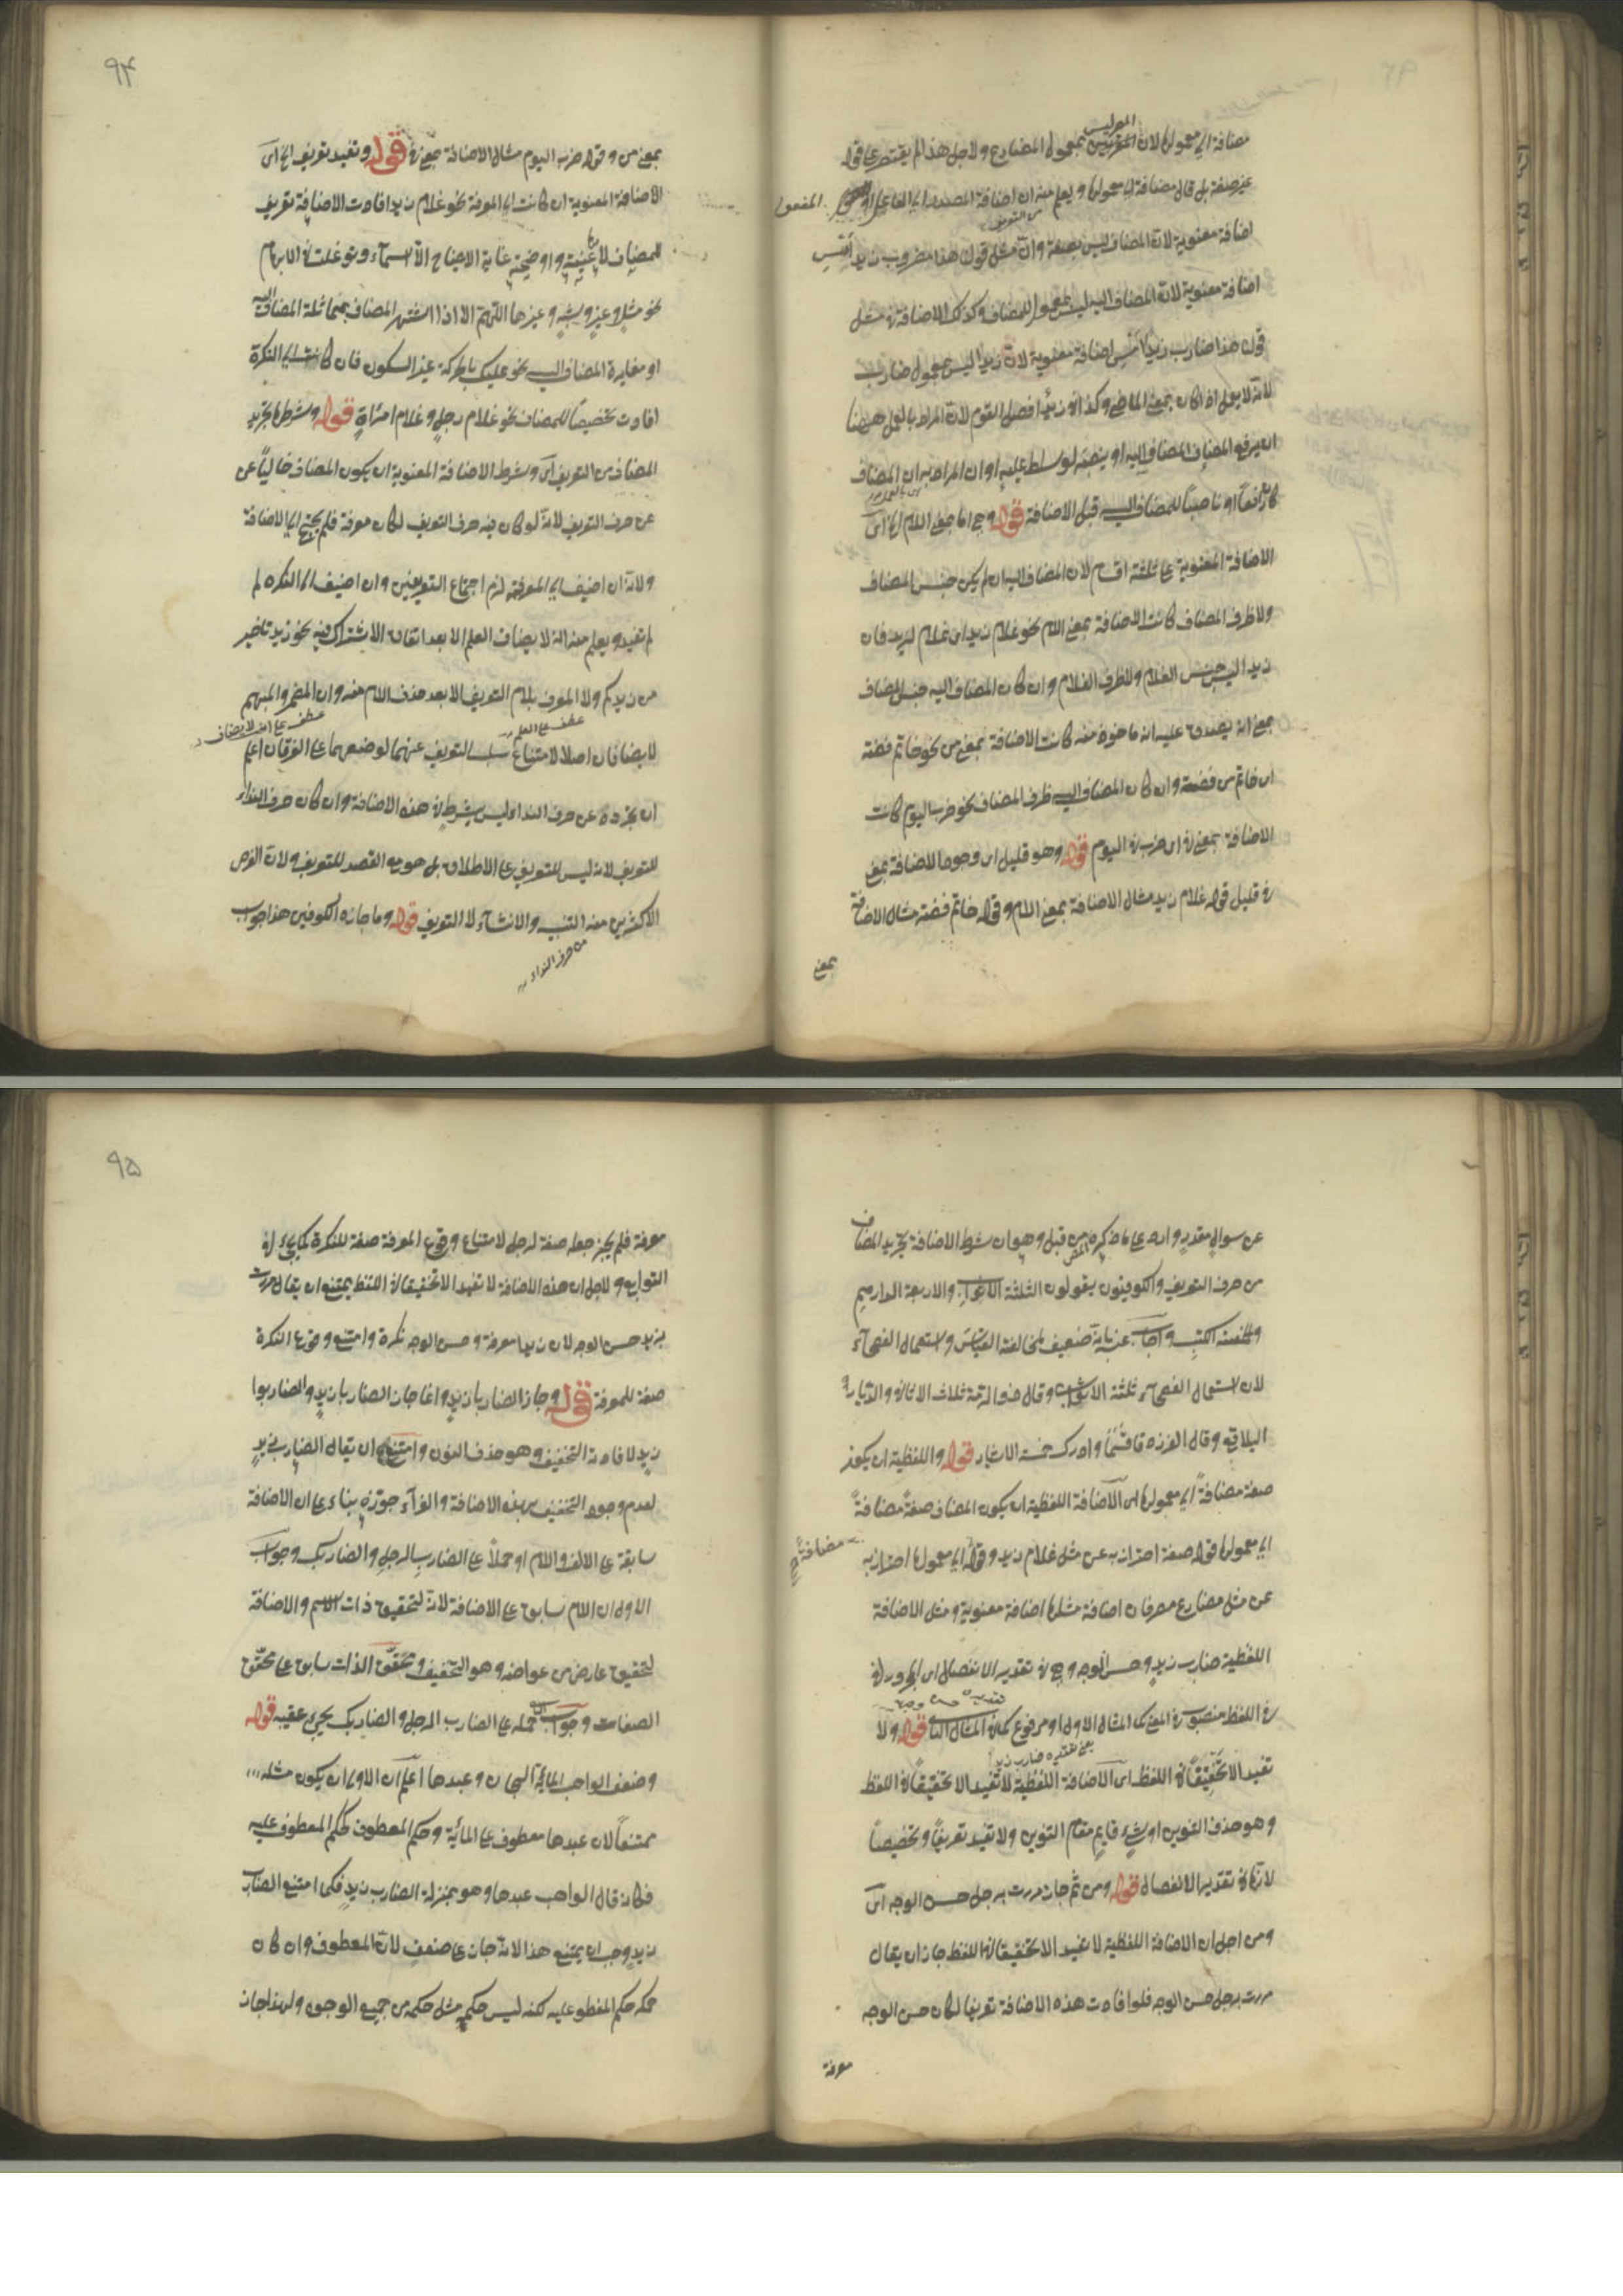 مضافة الى معمولها لان المصر ليس بمعمول المضارع ولاجل هذا لم يقتصر على قوله
غير صفة بل قال مضافة الى معمولها ويعلم منه ان اضافة المصدر الى الفاعل او المفعول
اضافة معنوية لان المضاف ليس بصفة وان مثل قولك هذا مضروب زيد امس
اضافة معنوية لان المضاف اليه ليس معمول للمضاف وكذلك الاضافة في مثل
قولك هذا ضارب زيد امس اضافة معنوية لان زيدا ليس معمول ضارب
لانه لا يعمل اذا كان بمعنى الماضي وكذا في زيد افضل القوم لان المراد بالعمل ههنا
ان يرفع المضاف المضاف اليه او ينصبه لو سلط عليه او ان المراد به ان المضاف
كان رافعا او ناصبا للمضاف اليه قبل الاضافة قوله وهي اما بمعنى اللام الخ اى
الاضافة المعنوية على ثلثة اقسام لان المضاف اليه ان لم يكن جنس المضاف
ولا ظرف المضاف كانت الاضافة بمعنى اللام نحو غلام زيد اى غلام لزيد فان
زيدا ليس جنس الغلام ولا ظرف الغلام وان كان المضاف اليه جنس المضاف
بمعنى انه يصدق عليه انه ماخوذ منه كانت الاضافة بمعنى من نحو خاتم فضة
اى خاتم من فضة وان كان المضاف اليه ظرف المضاف نحو ضرب اليوم كانت
الاضافة بمعنى في اى ضرب في اليوم قوله وهو قليل اى وجود الاضافة بمعنى
في قليل قوله غلام زيد مثال الاضافة بمعنى اللام وقوله خاتم فضة مثال الاضافة
بمعنى
٩٤
بمعنى من وقوله ضرب اليوم مثال الاضافة بمعنى في قوله وتفيد تعريف الخ اى
الاضافة المعنوية ان كانت الى المعرفة نحو غلام زيد افادت الاضافة تعريف
للمضاف
غاية الايضاح الا اسماء توغلت في الابهام
نحو مثل وغير وشبه وغيرها اللهم الا اذا اشتهر المضاف بمماثلة المضاف اليه
او مغايرة المضاف اليه نحو عليك بالحركة غير السكون فان كانت الى النكرة
افادت تخصيصا للمضاف نحو غلام رجل وغلام امراة قوله وشرطها تجريد
المضاف من التعريف اى وشرط الاضافة المعنوية ان يكون المضاف خاليا عن
عن حرف التعريف لانه لو كان فيه حرف التعريف لكان معرفة فلم يحتج الى الاضافة
ولانه ان اضيف الى المعرفة لزم اجتماع التعريفين وان اضيف الى النكرة لم
لم تفيد ويعلم منه انه لا يضاف العلم الا بعد اتفاق الاشتراك فيه نحو زيدنا خير
من زيدكم ولا المعرف بلام التعريف الا بعد حذف اللام منه وان المضمر والمبهم
عطف على العلم
عطف على انه لا يضاف
لا يضافان اصلا لامتناع سلب التعريف عنهما لوضعهما على العرفان اعلم
ان تجرده عن حرف النداء ليس بشرط في هذه الاضافة وان كان حرف النداء
للتعريف لانه ليس للتعريف على الاطلاق بل هو مع القصد للتعريف ولان الغرض
الاكثر من منه التنبيه والانشاء لا التعريف قوله وما جازه الكوفيين هذا جواب
من حرف النداء
عن سوال مقدر وارد على ما ذكره من قبل وهو ان شرط الاضافة تجريد المضاف
من حرف التعريف والكوفيون يقولون الثلثة الاثواب والاربعة الدراهم
والخمسة الكتب واجاب عنه بانه ضعيف لمخالفة القياس واستعمال الفصحاء
لان استعمال الفصحاء ثلثة الاثواب وقال ذو الرمة ثلاث الاثافي والديار
البلاقع وقال الفرزدق فسما وادرك خمسة الاشبار قوله واللفظية ان يكون
صفة مضافة الى معمولها اى الاضافة اللفظية ان يكون المضاف صفة مضافة
الى معمولها قوله صفة احتراز به عن مثل غلام زيد وقوله الى معمولها احتراز به
مضافة
عن مثل مضارع مصر فان اضافة مثلها اضافة معنوية ومثل الاضافة
اللفظية ضارب زيد وحسن الوجه وهي في تقدير الانفصال اى المجرور في
في اللفظ منصوب في المعنى كما المثال الاول او مرفوع كما في المثال الثاني قوله ولا
تفيد الا تخفيفا في اللفظ اى الاضافة اللفظية لا تفيد الا تخفيفا في اللفظ
وهو حذف التنوين او شيء قايم مقام التنوين ولا تفيد تعريفا وتخصيصا
لانها في تقدير الانفصال قوله ومن ثم جاز مررت برجل حسن الوجه اى
ومن اجل ان الاضافة اللفظية لا تفيد الا تخفيفا في اللفظ جاز ان يقال
مررت برجل حسن الوجه فلو افادت هذه الاضافة تعريفا لكان حسن الوجه
معرفة
٩٥
معرفة فلم يجز جعله صفة لرجل لامتناع وقوع المعرفة صفة للنكرة كما يجيء في
التوابع ولاجل ان هذه الاضافة لا تفيد الا تخفيفا في اللفظ يمتنع ان يقال مررت
بزيد حسن الوجه لان زيدا معرفة وحسن الوجه نكرة وامتنع وقوع النكرة
صفة للمعرفة قوله وجاز الضاربا زيد وانما جاز الضاربا زيد والضاربوا
زيد لافادة التخفيف وهو حذف النون وامتنع ان يقال الضارب زيد
لعدم وجود التخفيف بهذه الاضافة والفراء جوزه بناء على ان الاضافة
سابقة على الالف واللام او حملا على الضارب الرجل والضاربك وجواب
الاول ان اللام سابق على الاضافة لانه لتحقيق ذات الاسم والاضافة
لتحقيق عارض من عوارضه وهو التخفيف وتحقق الذات سابق على تحقق
الصفات وجواب حمله على الضارب الرجل والضاربك يجيء عقيبه قوله
وضعف الواهب المائة الهجان وعبدها اعلم ان الاولى ان يكون مثله
ممتنعا لان عبدها معطوف على المائة وحكم المعطوف حكم المعطوف عليه
فكانه قال الواهب عبدها وهو بمنزلة الضارب زيد فكما امتنع الضارب
زيد وجب ان يمتنع هذا لانه جاز على ضعف لان المعطوف وان كان
حكمه حكم المعطوف عليه لكنه ليس حكمه مثل حكمه من جميع الوجوه ولهذا جاز